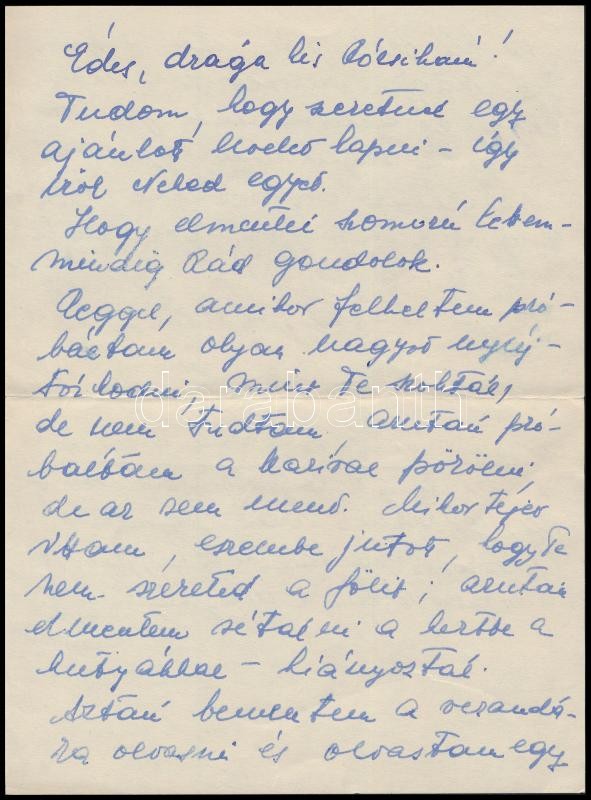 Édes, drága kis Rócsikám!
Tudom, hogy szeretnél egy
ajánlott levelet kapni – így
írok Neked egyet.
Hogy elmentél szomorú lettem –
mindig Rád gondolok.
Reggel, amikor felkeltem pró-
báltam olyan nagyot nyúj-
tózkodni, mint Te szoktál,
de nem tudtam, azután pró-
báltam a Marival pörölni,
de az sem ment. Mikor tejet
ittam, eszembe jutott, hogy Te
nem szereted a fölit; azután
elmentem sétálni a kertbe a
kutyákkal – hiányoztál.
Aztán bementem a verandá-
ra olvasni és olvastam egy
darabanth